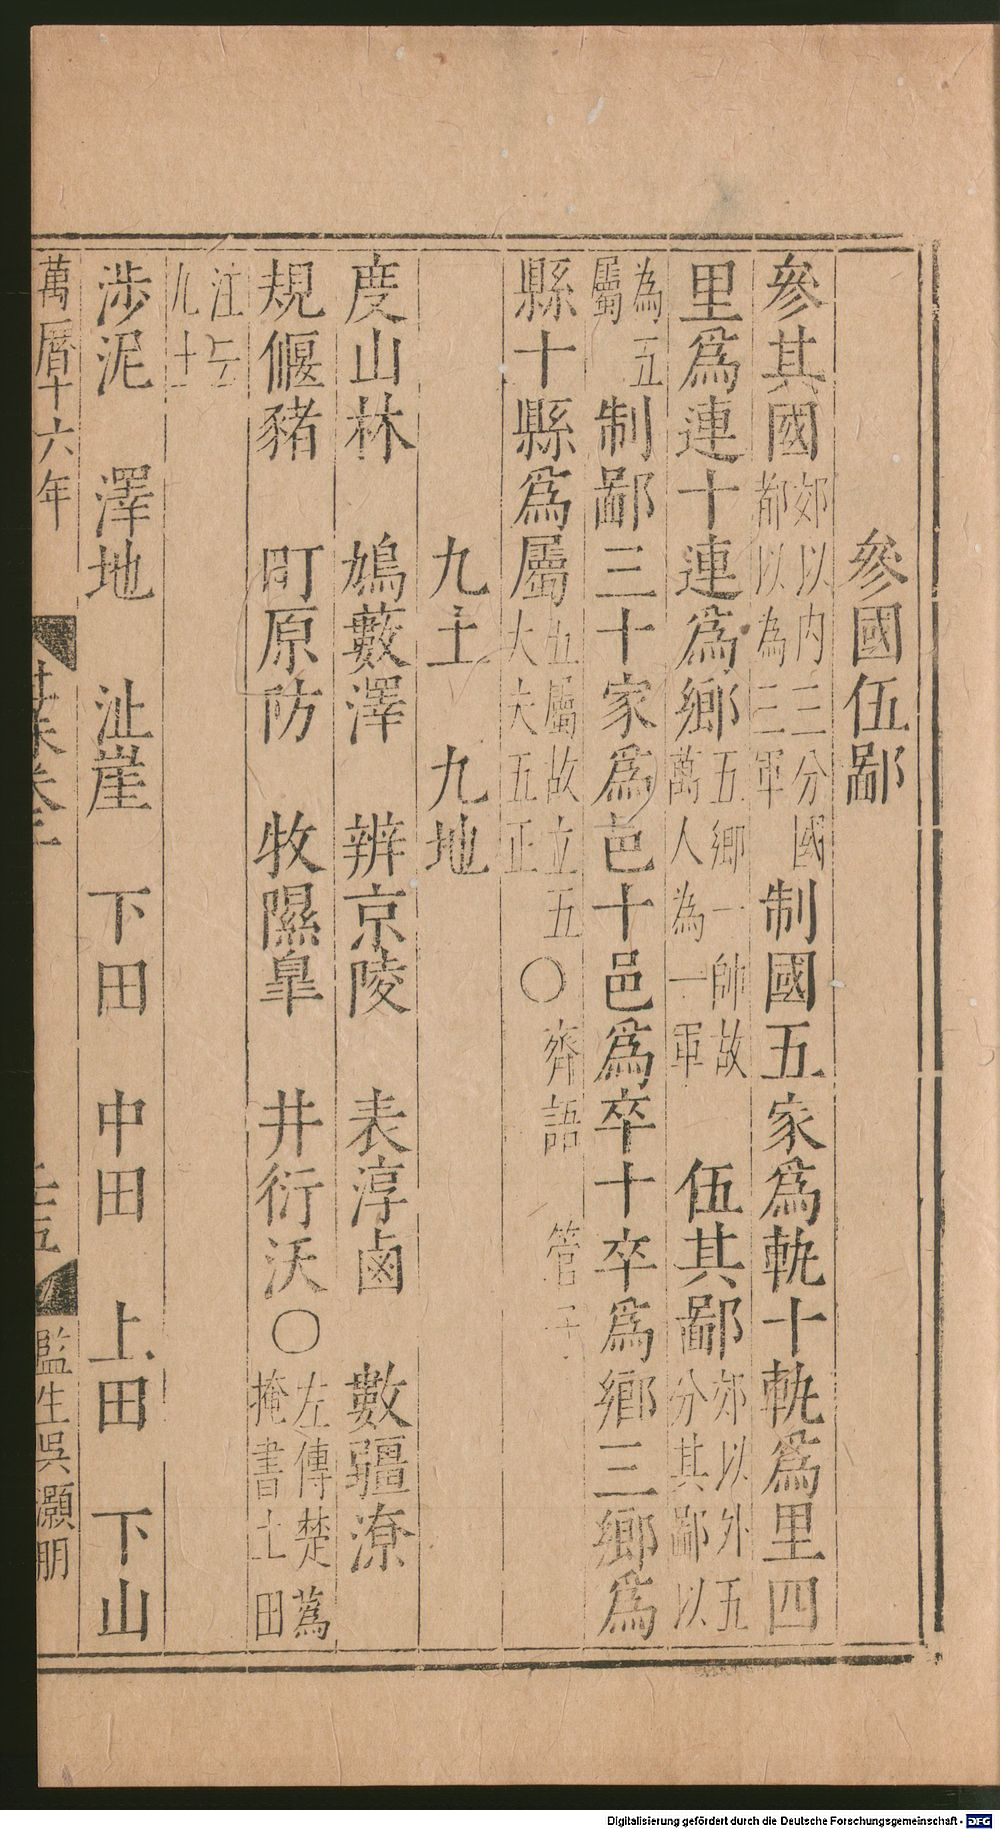 參國伍鄙
參其國郊以內三分國都以為三軍制國五家爲軌十軌爲里四
里爲連十連爲鄉五鄉一帥故萬人為一軍伍其鄙郊以外五分其鄙以
為五屬制鄙三十家爲邑十邑爲卒十卒爲鄉三鄉爲
縣十縣爲屬五屬故立五大夫五正○齊語 管子
九土 九地
度山林 鳩藪澤 辨京陵 表淳鹵 數疆潦
規偃豬 町原防 牧隰皐 井衍沃○左傳楚蒍掩書土田
注云九土
涉泥 澤地 沚崖 下田 中田 上田 下山
萬曆十六年
監生吳灝朋
Digitalisierung gefördert durch die Deutsche Forschungsgemeinschaft - DFG